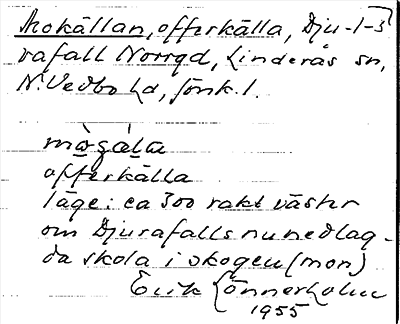 Mokällan, offerkälla, Dju-1-3
rafall Norrgd, Linderås sn,
N. Vedbo hd, Jönk. l.
offerkälla
läge: ca 300 rakt väster
om Djurafalls nu nedlag-
da skola i skogen (mon)
Erik Lönnerholm
1955